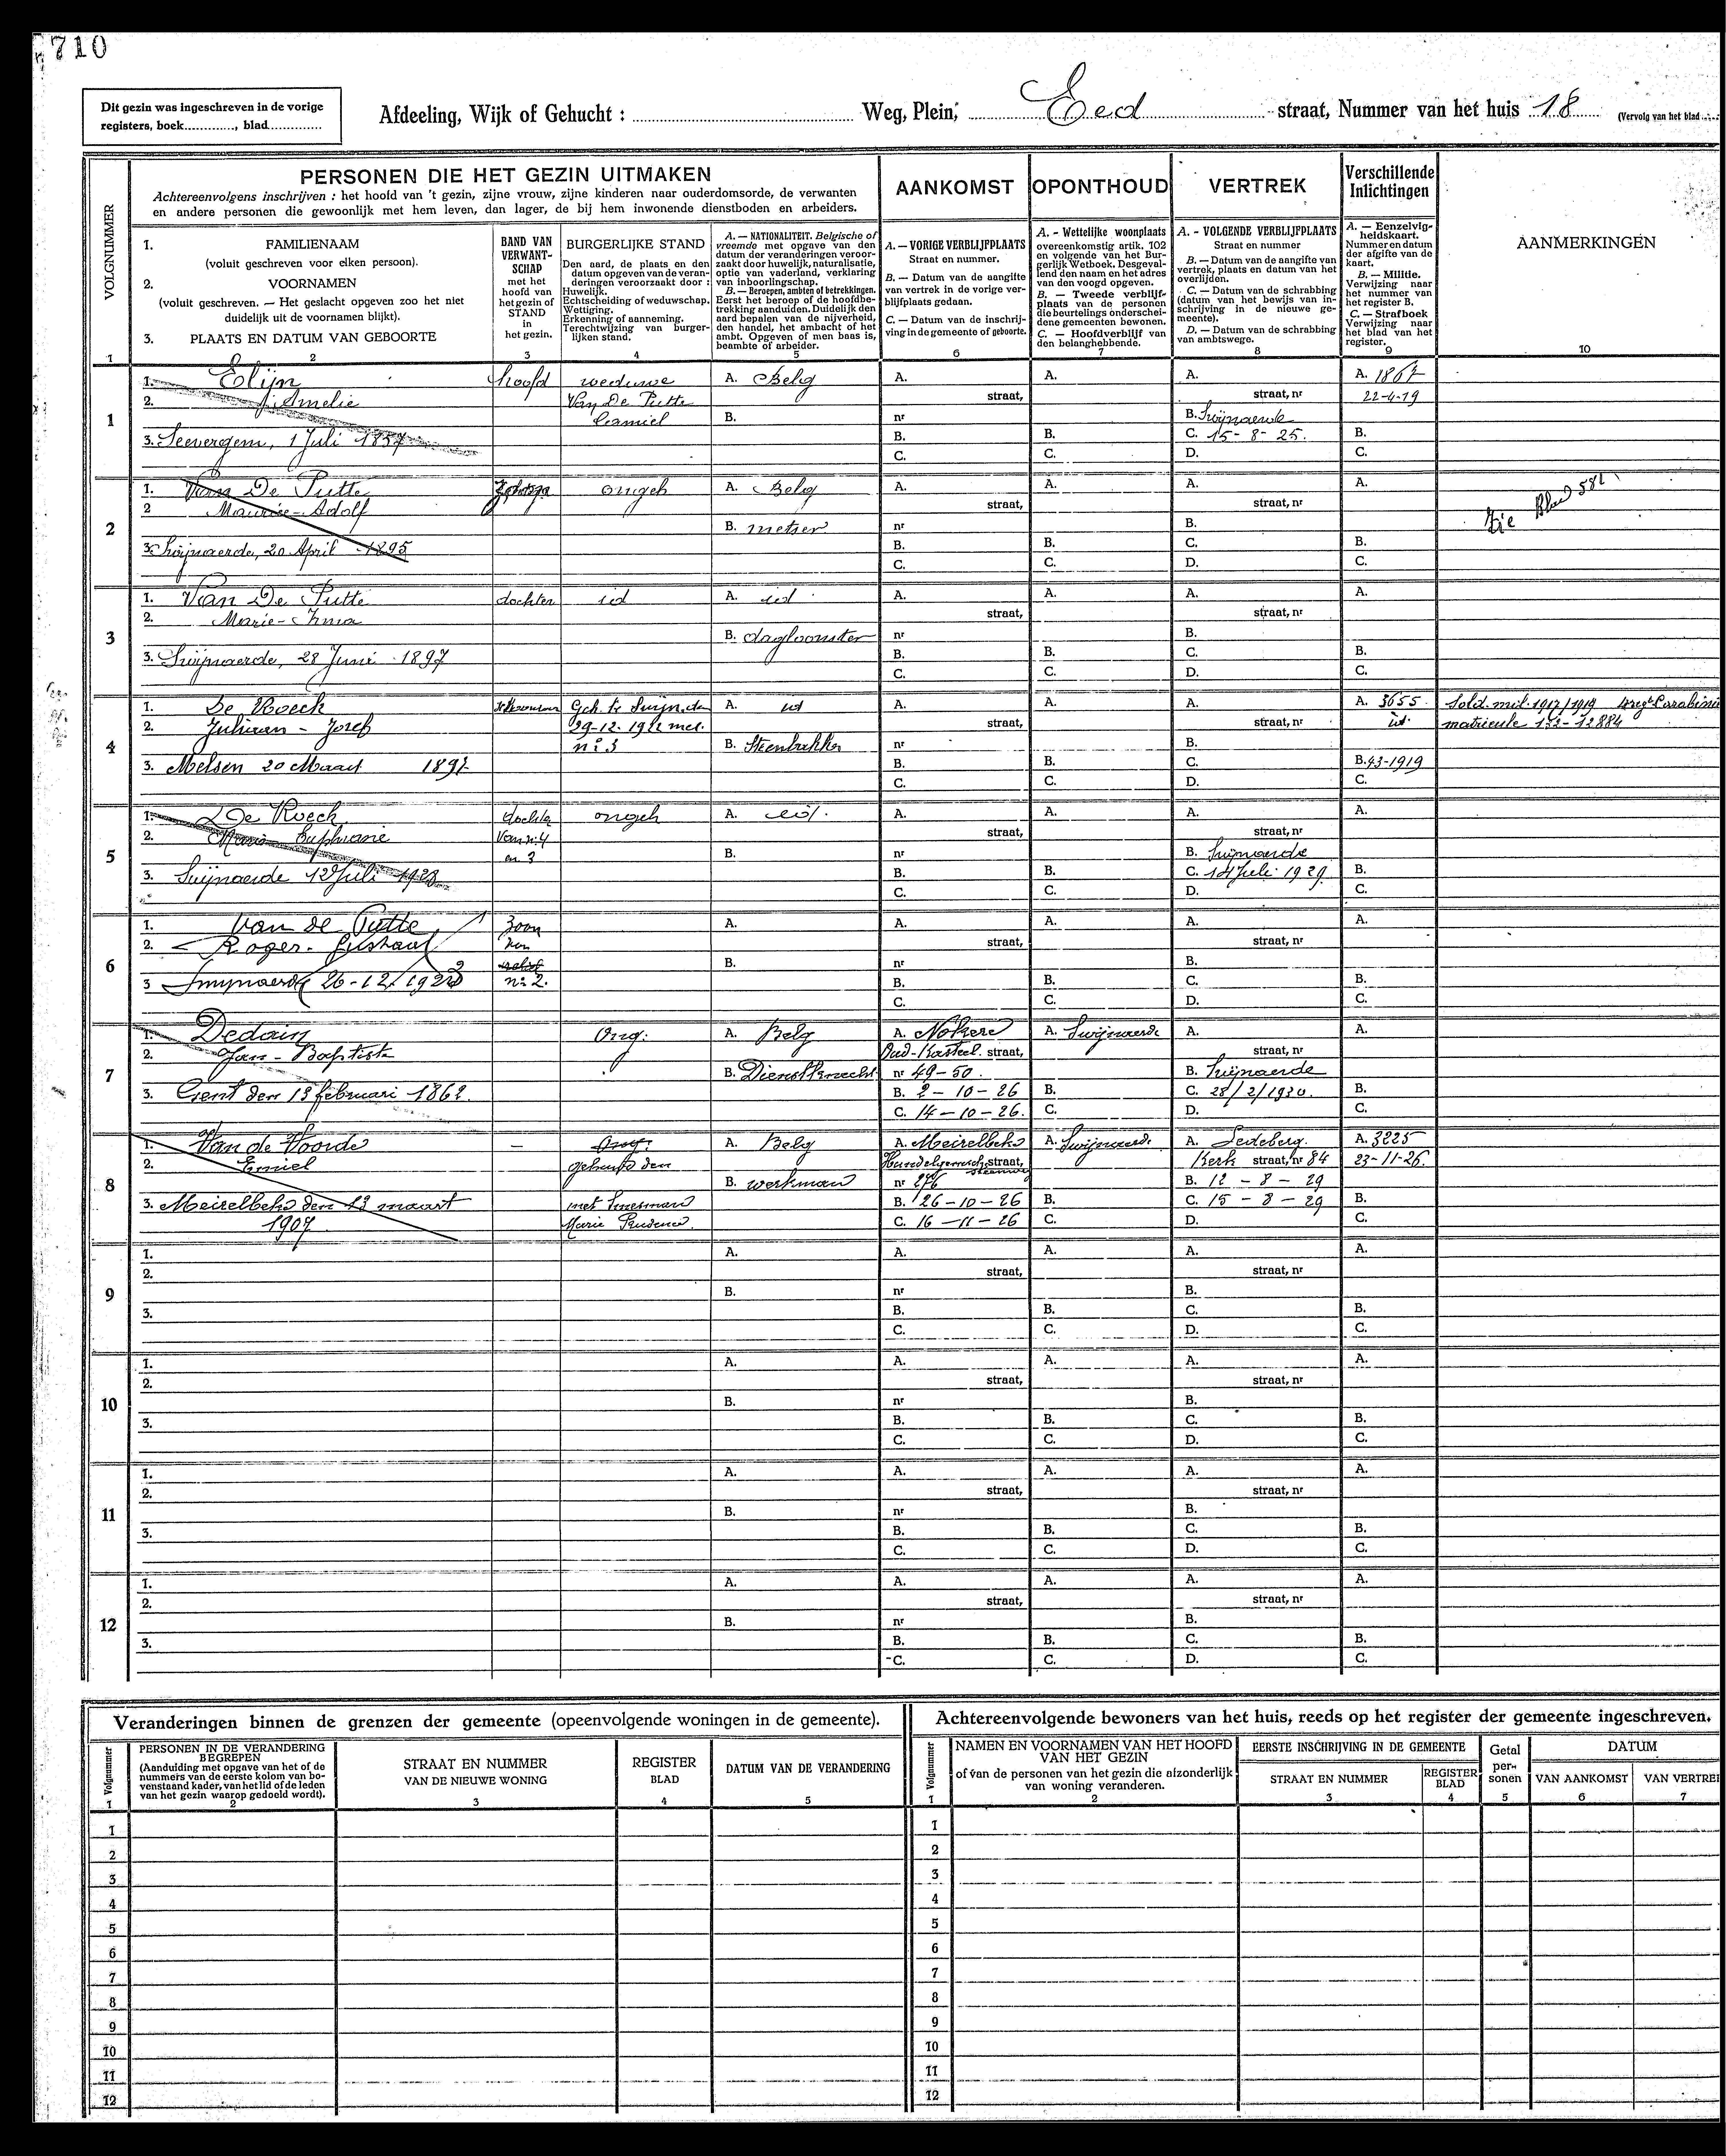 710
Dit gezin was ingeschreven in de vorige
registers, boek............., blad.............
Afdeeling, Wijk of Gehucht : Weg, Plein, Eed straat, Nummer van het huis 18 (Vervolg van het blad
VOLGNUMMER
PERSONEN DIE HET GEZIN UITMAKEN
Achtereenvolgens inschrijven : het hoofd van 't gezin, zijne vrouw, zijne kinderen naar ouderdomsorde, de verwanten
en andere personen die gewoonlijk met hem leven, dan lager, de bij hem inwonende dienstboden en arbeiders.
1. FAMILIENAAM
(voluit geschreven voor elken persoon).
2. VOORNAMEN
(voluit geschreven. — Het geslacht opgeven zoo het niet
duidelijk uit de voornamen blijkt).
3. PLAATS EN DATUM VAN GEBOORTE
BAND VAN
VERWANT-
SCHAP
met het
hoofd van
het gezin of
STAND
in
het gezin.
BURGERLIJKE STAND
Den aard, de plaats en den
datum opgeven van de veran-
deringen veroorzaakt door :
Huwelijk.
Echtscheiding of weduwschap.
Wettiging.
Erkenning of aanneming.
Terechtwijzing van burger-
lijken stand.
A. — NATIONALITEIT. Belgische of
vreemde met opgave van den
datum der veranderingen veroor-
zaakt door huwelijk, naturalisatie,
optie van vaderland, verklaring
van inboorlingschap.
B. — Beroepen, ambten of betrekkingen.
Eerst het beroep of de hoofdbe-
trekking aanduiden. Duidelijk den
aard bepalen van de nijverheid,
den handel, het ambacht of het
ambt. Opgeven of men baas is,
beambte of arbeider.
AANKOMST
A. — VORIGE VERBLIJFPLAATS
Straat en nummer.
B. — Datum van de aangifte
van vertrek in de vorige ver-
blijfplaats gedaan.
C. — Datum van de inschrij-
ving in de gemeente of geboorte.
OPONTHOUD
A. - Wettelijke woonplaats
overeenkomstig artik. 102
en volgende van het Bur-
gerlijk Wetboek. Desgeval-
lend den naam en het adres
van den voogd opgeven.
B. — Tweede verblijf-
plaats van de personen
die beurtelings onderschei-
dene gemeenten bewonen.
C. — Hoofdverblijf van
den belanghebbende.
VERTREK
A. - VOLGENDE VERBLIJFPLAATS
Straat en nummer
B. — Datum van de aangifte van
vertrek, plaats en datum van het
overlijden.
C. — Datum van de schrabbing
(datum van het bewijs van in-
schrijving in de nieuwe ge-
meente).
D. — Datum van de schrabbing
van ambtswege.
Verschillende
Inlichtingen
A. — Eenzelvig-
heidskaart.
Nummer en datum
der afgifte van de
kaart.
B. — Militie.
Verwijzing naar
het nummer van
het register B.
C. — Strafboek
Verwijzing naar
het blad van het
register.
AANMERKINGEN
1 2 3 4 5 6 7 8 9 10
1
1. Elijn hoofd weduwe A. Belg A. A. A. A. 1867
2. Amelie Van De Putte straat, straat, nr 22-4-19
Camiel B. nr B. Swijnaerde
3. Seevergem, 1 Juli 1857 B. B. C. 15-8-25. B.
C. C. D. C.
2
1. Van De Putte ongeh A. Belg A. A. A. A.
2 Maurice-Adolf straat, straat, nr Zie Blad 581
B. metser nr B.
3. Swijnaerde, 20 April 1895 B. B. C. B.
C. C. D. C.
3
1. Van De Putte dochter id A. id A. A. A. A.
2. Marie-Irma straat, straat, nr
B. dagloonster nr B.
3. Swijnaerde, 28 Juni 1897 B. B. C. B.
C. C. D. C.
4
1. De Roeck A. id A. A. A. A. 3655 Sold. mil. 1917/1919
2. Juliaan - Jozef straat, straat, nr id matricule 133-12884
n: 3 B. Steenbakker nr B.
3. Melsen 20 Maart 1897 B. B. C. B. 43-1919
C. C. D. C.
5
1. De Roeck dochter ongeh A. id. A. A. A. A.
2. Maria Euphranie van n: 4 straat, straat, nr
en 3 B. nr B. Swijnaerde
3. Swijnaerde 12 Juli 1928 B. B. C. 14 Juli 1929 B.
C. C. D. C.
6
1. Van de Putte Zoon A. A. A. A. A.
2. Roger- Gustaaf van straat, straat, nr
B. nr B.
3 Swynaerde 26-12/1923 n: 2. B. B. C. B.
C. C. D. C.
7
1. Dedain Ong. A. Belg A. Nokere A. Swijnaerde A. A.
2. Jan - Baptiste Oud-Kasteel. straat, straat, nr
B. Dienstknecht nr 49-50. B. Swijnaerde
3. Gent den 13 februari 1862. B. 2-10-26 B. C. 28/2/1930. B.
C. 14-10-26. C. D. C.
8
1. Van de Voorde — Ong. A. Belg A. Meirelbeke A. Swijnaerde A. Ledeberg. A. 3225
2. Emiel gehuwd den Hundelgemsche straat, steenweg Kerk straat, nr 84 23-11-26.
B. werkman nr 276 B. 12-8-29
3. Meirelbeke den 13 maart met B. 26-10-26 B. C. 15-8-29 B.
1907 Marie Prudence. C. 16-11-26 C. D. C.
9
1. A. A. A. A. A.
2. straat, straat, nr
B. nr B.
3. B. B. C. B.
C. C. D. C.
10
1. A. A. A. A. A.
2. straat, straat, nr
B. nr B.
3. B. B. C. B.
C. C. D. C.
11
1. A. A. A. A. A.
2. straat, straat, nr
B. nr B.
3. B. B. C. B.
C. C. D. C.
12
1. A. A. A. A. A.
2. straat, straat, nr
B. nr B.
3. B. B. C. B.
C. C. D. C.
Veranderingen binnen de grenzen der gemeente (opeenvolgende woningen in de gemeente).
Volgnummer
PERSONEN IN DE VERANDERING
BEGREPEN
(Aanduiding met opgave van het of de
nummers van de eerste kolom van bo-
venstaand kader, van het lid of de leden
van het gezin waarop gedoeld wordt).
STRAAT EN NUMMER
VAN DE NIEUWE WONING
REGISTER
BLAD
DATUM VAN DE VERANDERING
1 2 3 4 5
1
2
3
4
5
6
7
8
9
10
11
12
Achtereenvolgende bewoners van het huis, reeds op het register der gemeente ingeschreven.
Volgnummer
NAMEN EN VOORNAMEN VAN HET HOOFD
VAN HET GEZIN
of van de personen van het gezin die afzonderlijk
van woning veranderen.
EERSTE INSCHRIJVING IN DE GEMEENTE
STRAAT EN NUMMER
REGISTER
BLAD
Getal
per-
sonen
DATUM
VAN AANKOMST VAN VERTRE
1 2 3 4 5 6 7
1
2
3
4
5
6
7
8
9
10
11
12